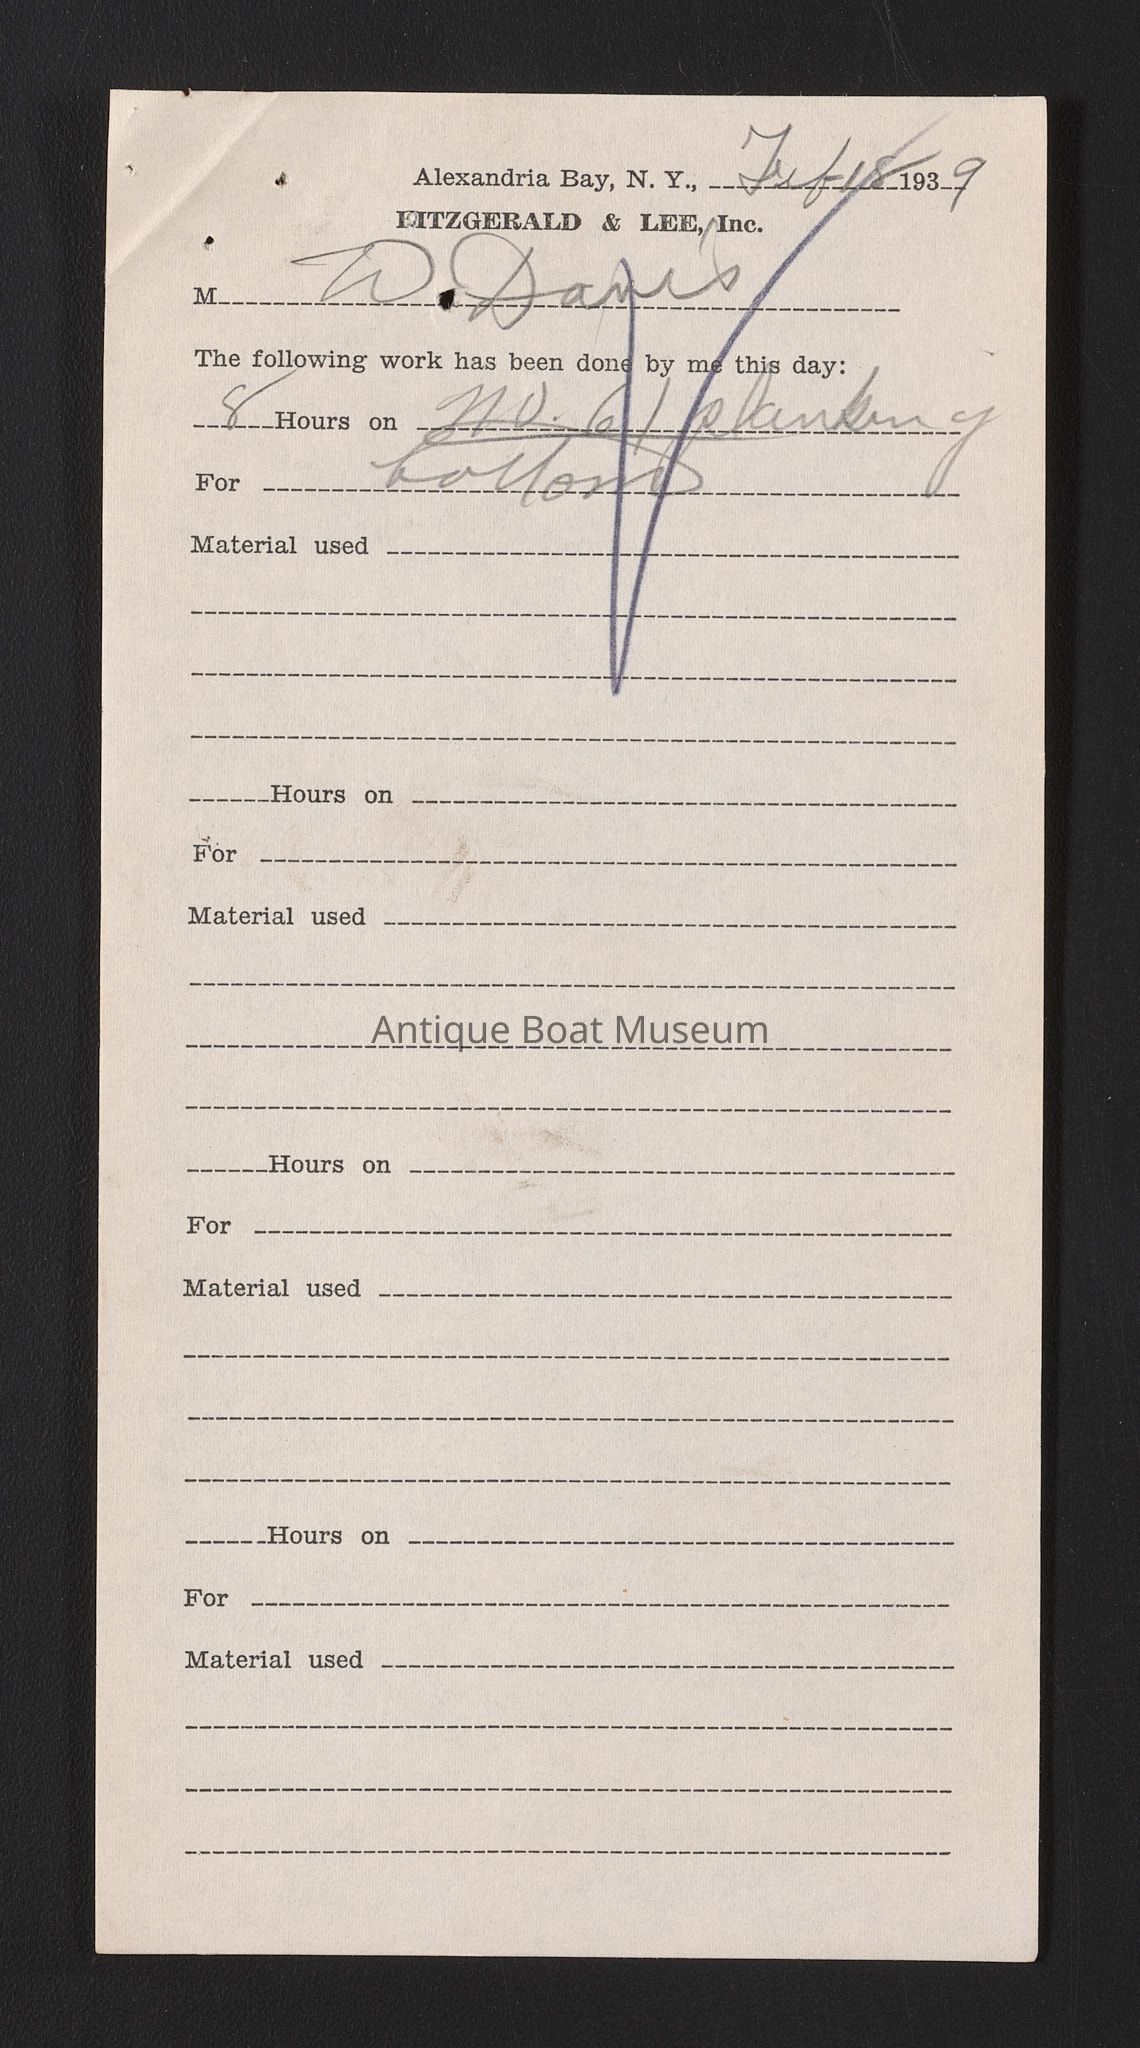 Alexandria Bay, N. Y., Feb 18 1939
FITZGERALD & LEE, Inc.
M W. Davis
The following work has been done by me this day:
8 Hours on No. 61 planking
For bottom
Material used
Hours on
For
Material used
Antique Boat Museum
Hours on
For
Material used
Hours on
For
Material used